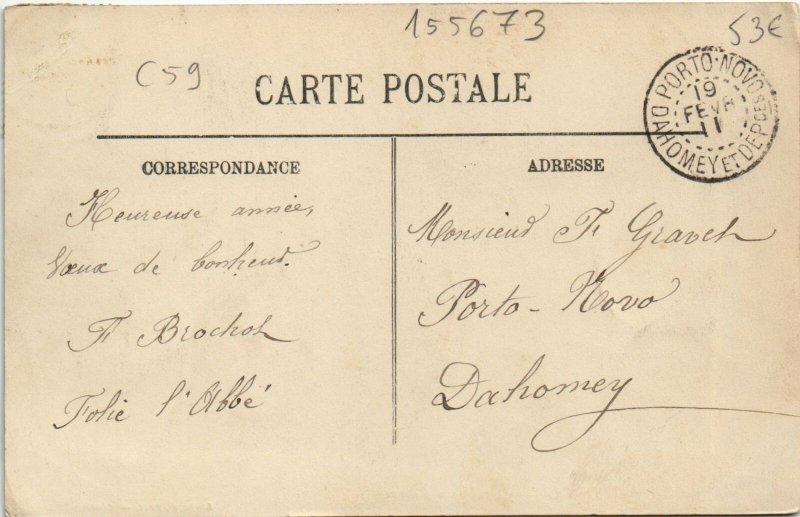 155673
53€
C59
CARTE POSTALE
PORTO-NOVO
19
FEVR
11
DAHOMEY ET DEPCES
CORRESPONDANCE
Heureuse année,
Vœux de bonheur.
F Brochot
Folie l'Abbé
ADRESSE
Monsieur F Gravet
Porto-Novo
Dahomey